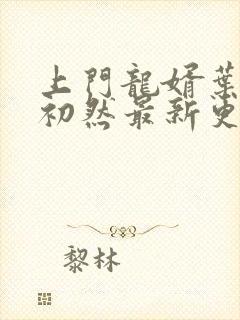 上門龍婿葉
初然最新更
黎林